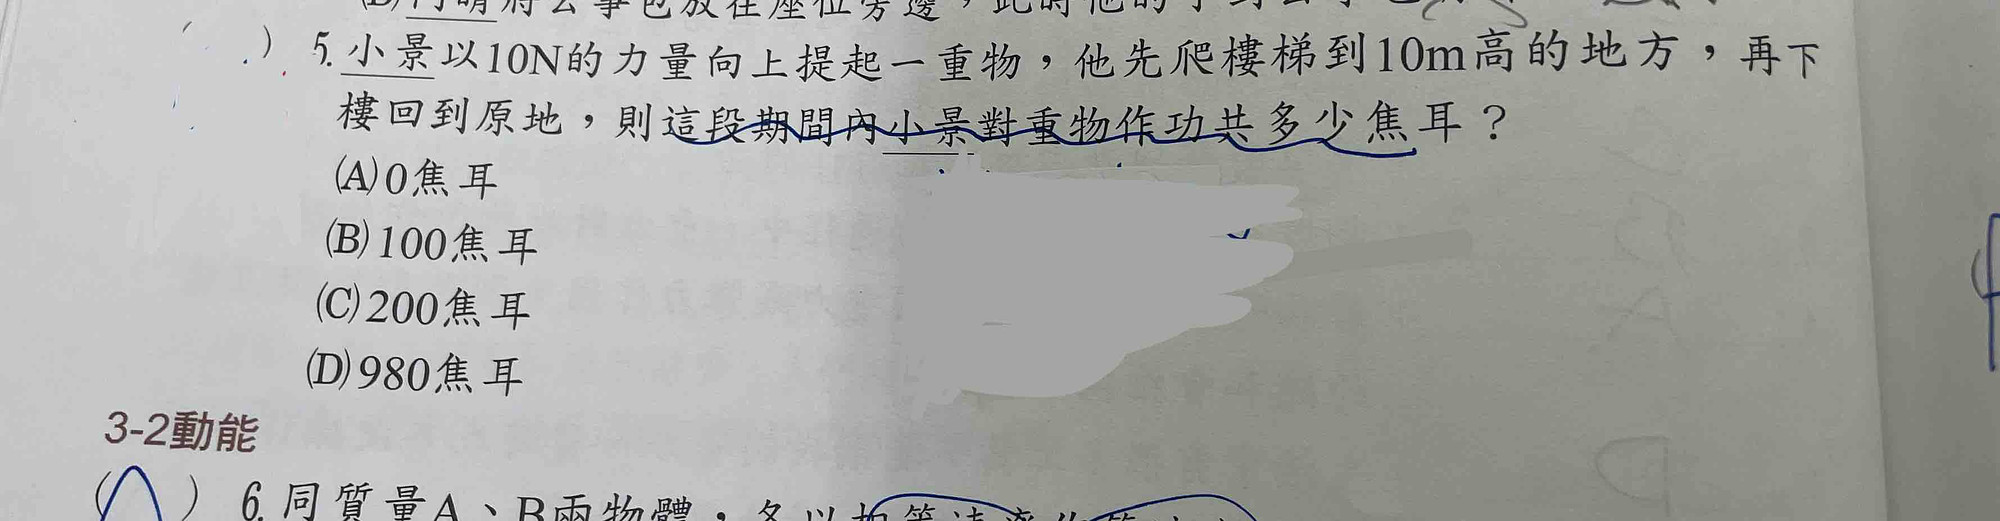 5.小景以10N的力量向上提起一重物，他先爬樓梯到10m高的地方，再下
樓回到原地，則這段期間內小景對重物作功共多少焦耳？
(A)0焦耳
(B)100焦耳
(C)200焦耳
(D)980焦耳
3-2動能
( ) 6.同質量A、B兩物體，各以相等速率作等